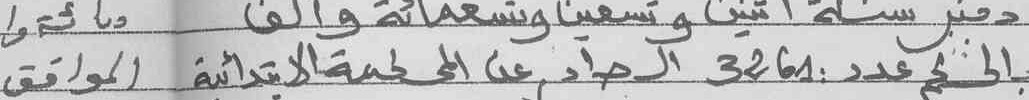 دجنبر سنة اثنين وتسعين وتسعمائة وألف
بالحكم عدد: 3261 الصادر عن المحكمة الابتدائية الموافق